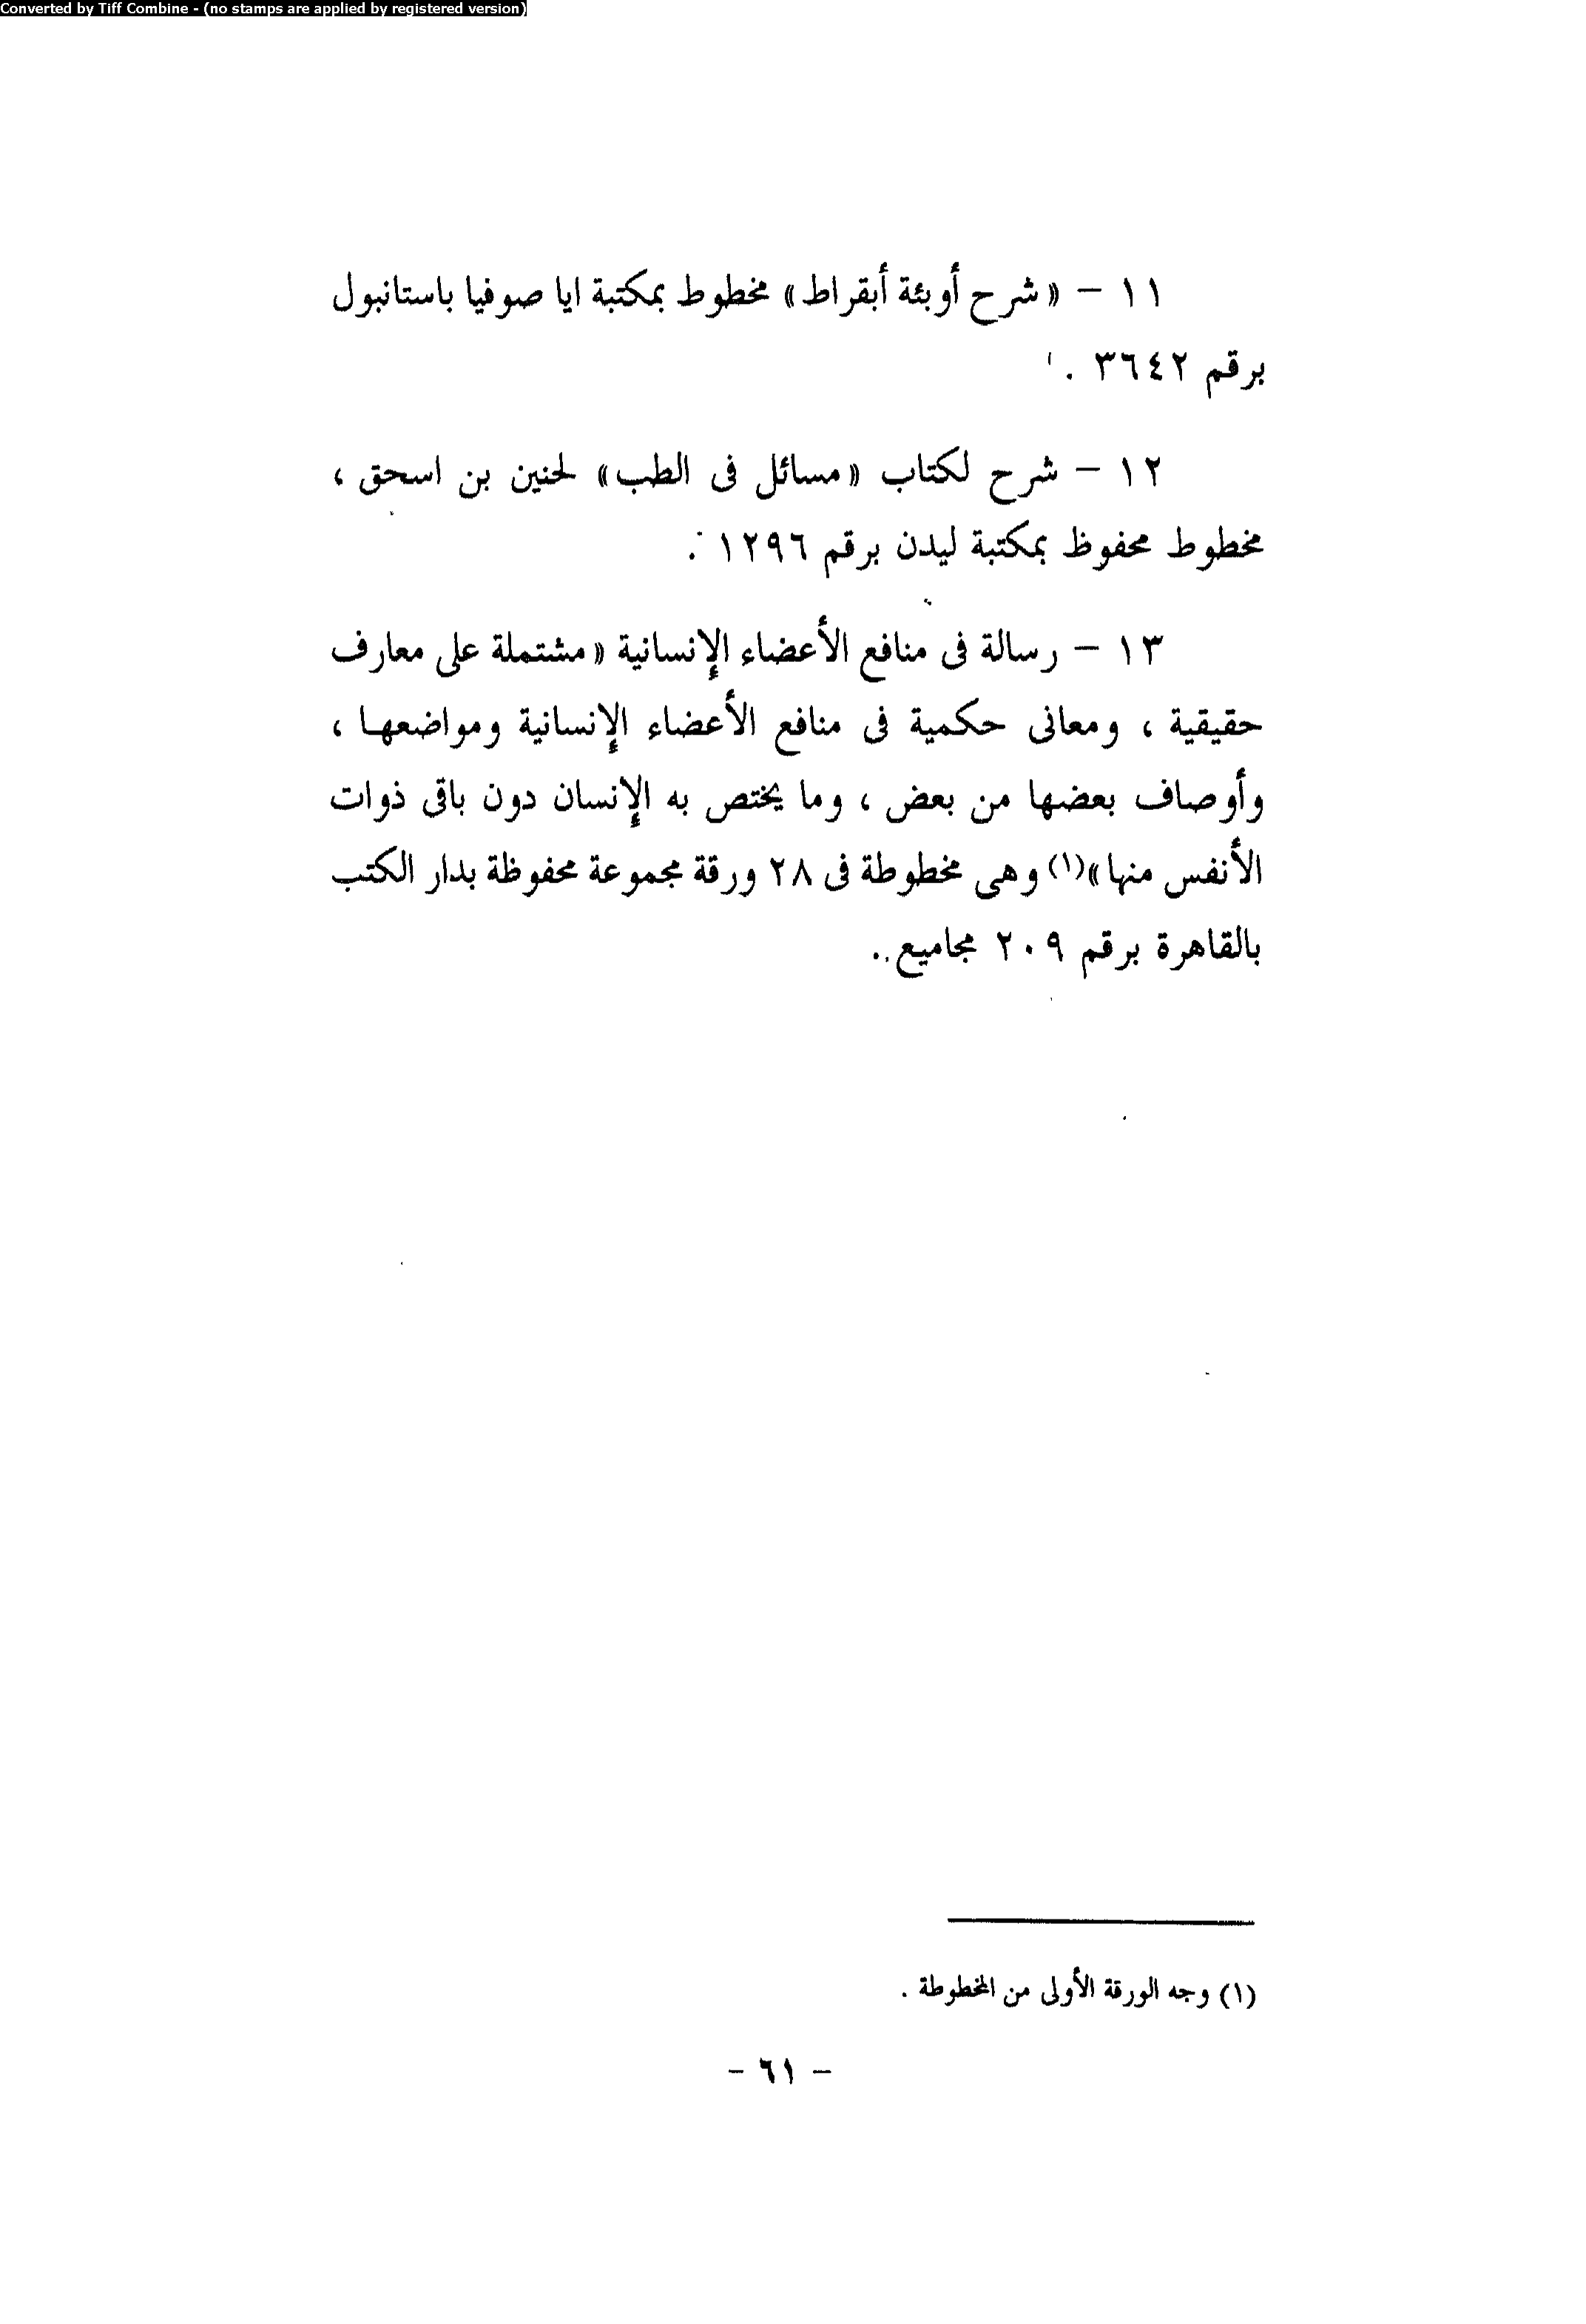 Converted by Tiff Combine - (no stamps are applied by registered version)
١١ – «شرح أوبئة أبقراط» مخطوط بمكتبة ايا صوفيا باستانبول
برقم ٣٦٤٢ .
١٢ – شرح لكتاب «مسائل فى الطب» لحنين بن اسحق ،
مخطوط محفوظ بمكتبة ليدن برقم ١٢٩٦ .
١٣ – رسالة فى منافع الأعضاء الإنسانية «مشتملة على معارف
حقيقية ، ومعانى حكمية فى منافع الأعضاء الإنسانية ومواضعها ،
وأوصاف بعضها من بعض ، وما يختص به الإنسان دون باقى ذوات
الأنفس منها»(١) وهى مخطوطة فى ٢٨ ورقة مجموعة محفوظة بدار الكتب
بالقاهرة برقم ٢٠٩ مجاميع .
(١) وجه الورقة الأولى من المخطوطة .
– ٦١ –